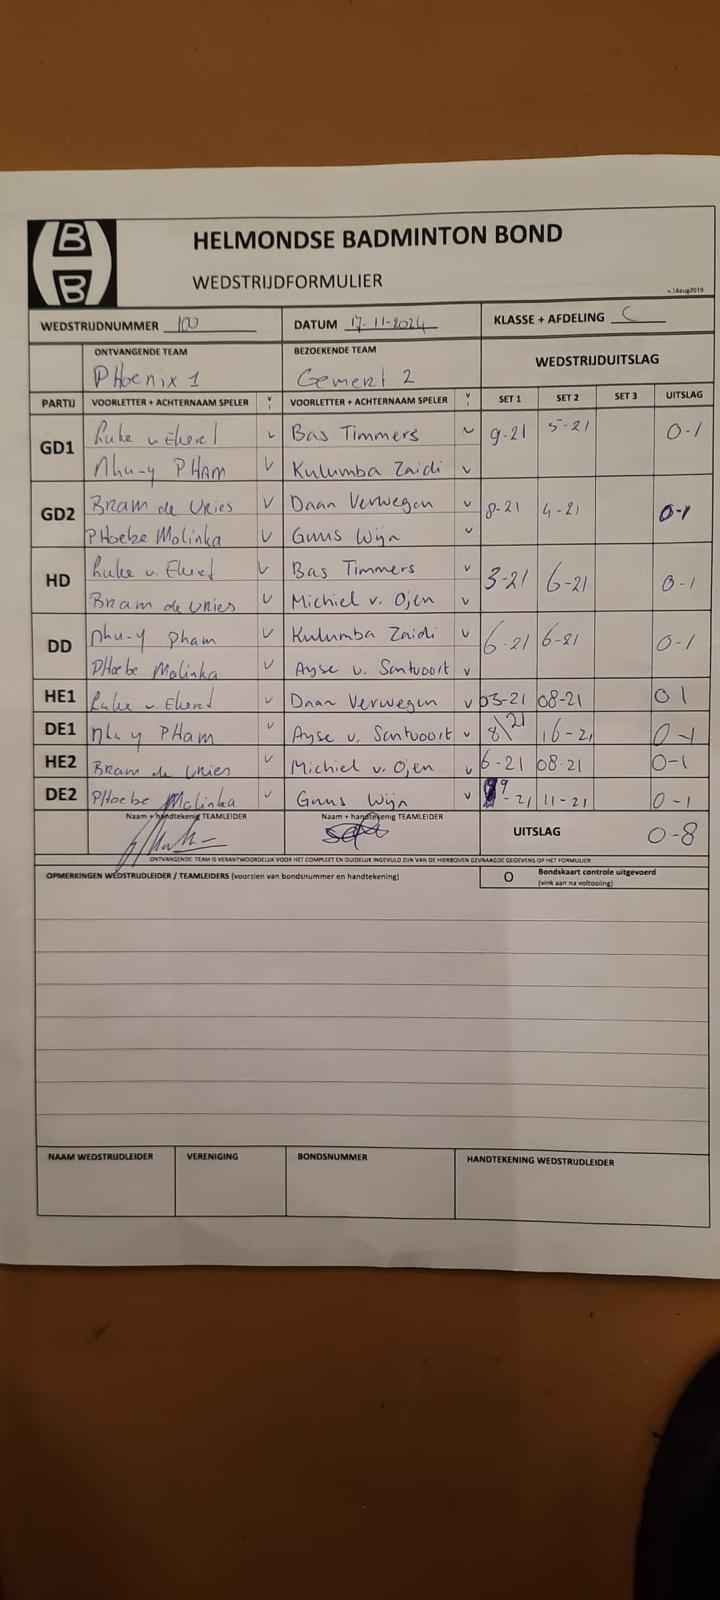 HELMONDSE BADMINTON BOND
WEDSTRIJDFORMULIER
v.14aug2019
WEDSTRIJDNUMMER 100 DATUM 17-11-2024 KLASSE + AFDELING C
ONTVANGENDE TEAM BEZOEKENDE TEAM WEDSTRIJDUITSLAG
PHoenix 1 Gemert 2
PARTIJ VOORLETTER + ACHTERNAAM SPELER V VOORLETTER + ACHTERNAAM SPELER V SET 1 SET 2 SET 3 UITSLAG
GD1 Luke v. v Bas Timmers v 9-21 5-21 0-1
Nhu-y PHAM v Kulumba Zaidi v
GD2 Bram de Vries v Daan Verwegen v 8-21 4-21 0-1
PHoebe Molinka v Guus Wijn v
HD Luke v. v Bas Timmers v 3-21 6-21 0-1
Bram de Vries v Michiel v. Ojen v
DD Nhu-y Pham v Kulumba Zaidi v 6-21 6-21 0-1
PHoebe Molinka v Ayse v. Santvoort v
HE1 Luke v. v Daan Verwegen v 03-21 08-21 0 1
DE1 Nhu y PHam v Ayse v. Santvoort v 8\21 16-21 0-1
HE2 Bram de Vries v Michiel v. Ojen v 6-21 08-21 0-1
DE2 PHoebe Molinka v Guus Wijn v 9-21 11-21 0-1
Naam + handtekenig TEAMLEIDER Naam + handtekenig TEAMLEIDER UITSLAG 0-8
ONTVANGENDE TEAM IS VERANTWOORDELIJK VOOR HET COMPLEET EN DUIDELIJK INGEVULD ZIJN VAN DE HIERBOVEN GEVRAAGDE GEGEVENS OP HET FORMULIER
OPMERKINGEN WEDSTRIJDLEIDER / TEAMLEIDERS (voorzien van bondsnummer en handtekening) O Bondskaart controle uitgevoerd
(vink aan na voltooiing)
NAAM WEDSTRIJDLEIDER VERENIGING BONDSNUMMER HANDTEKENING WEDSTRIJDLEIDER